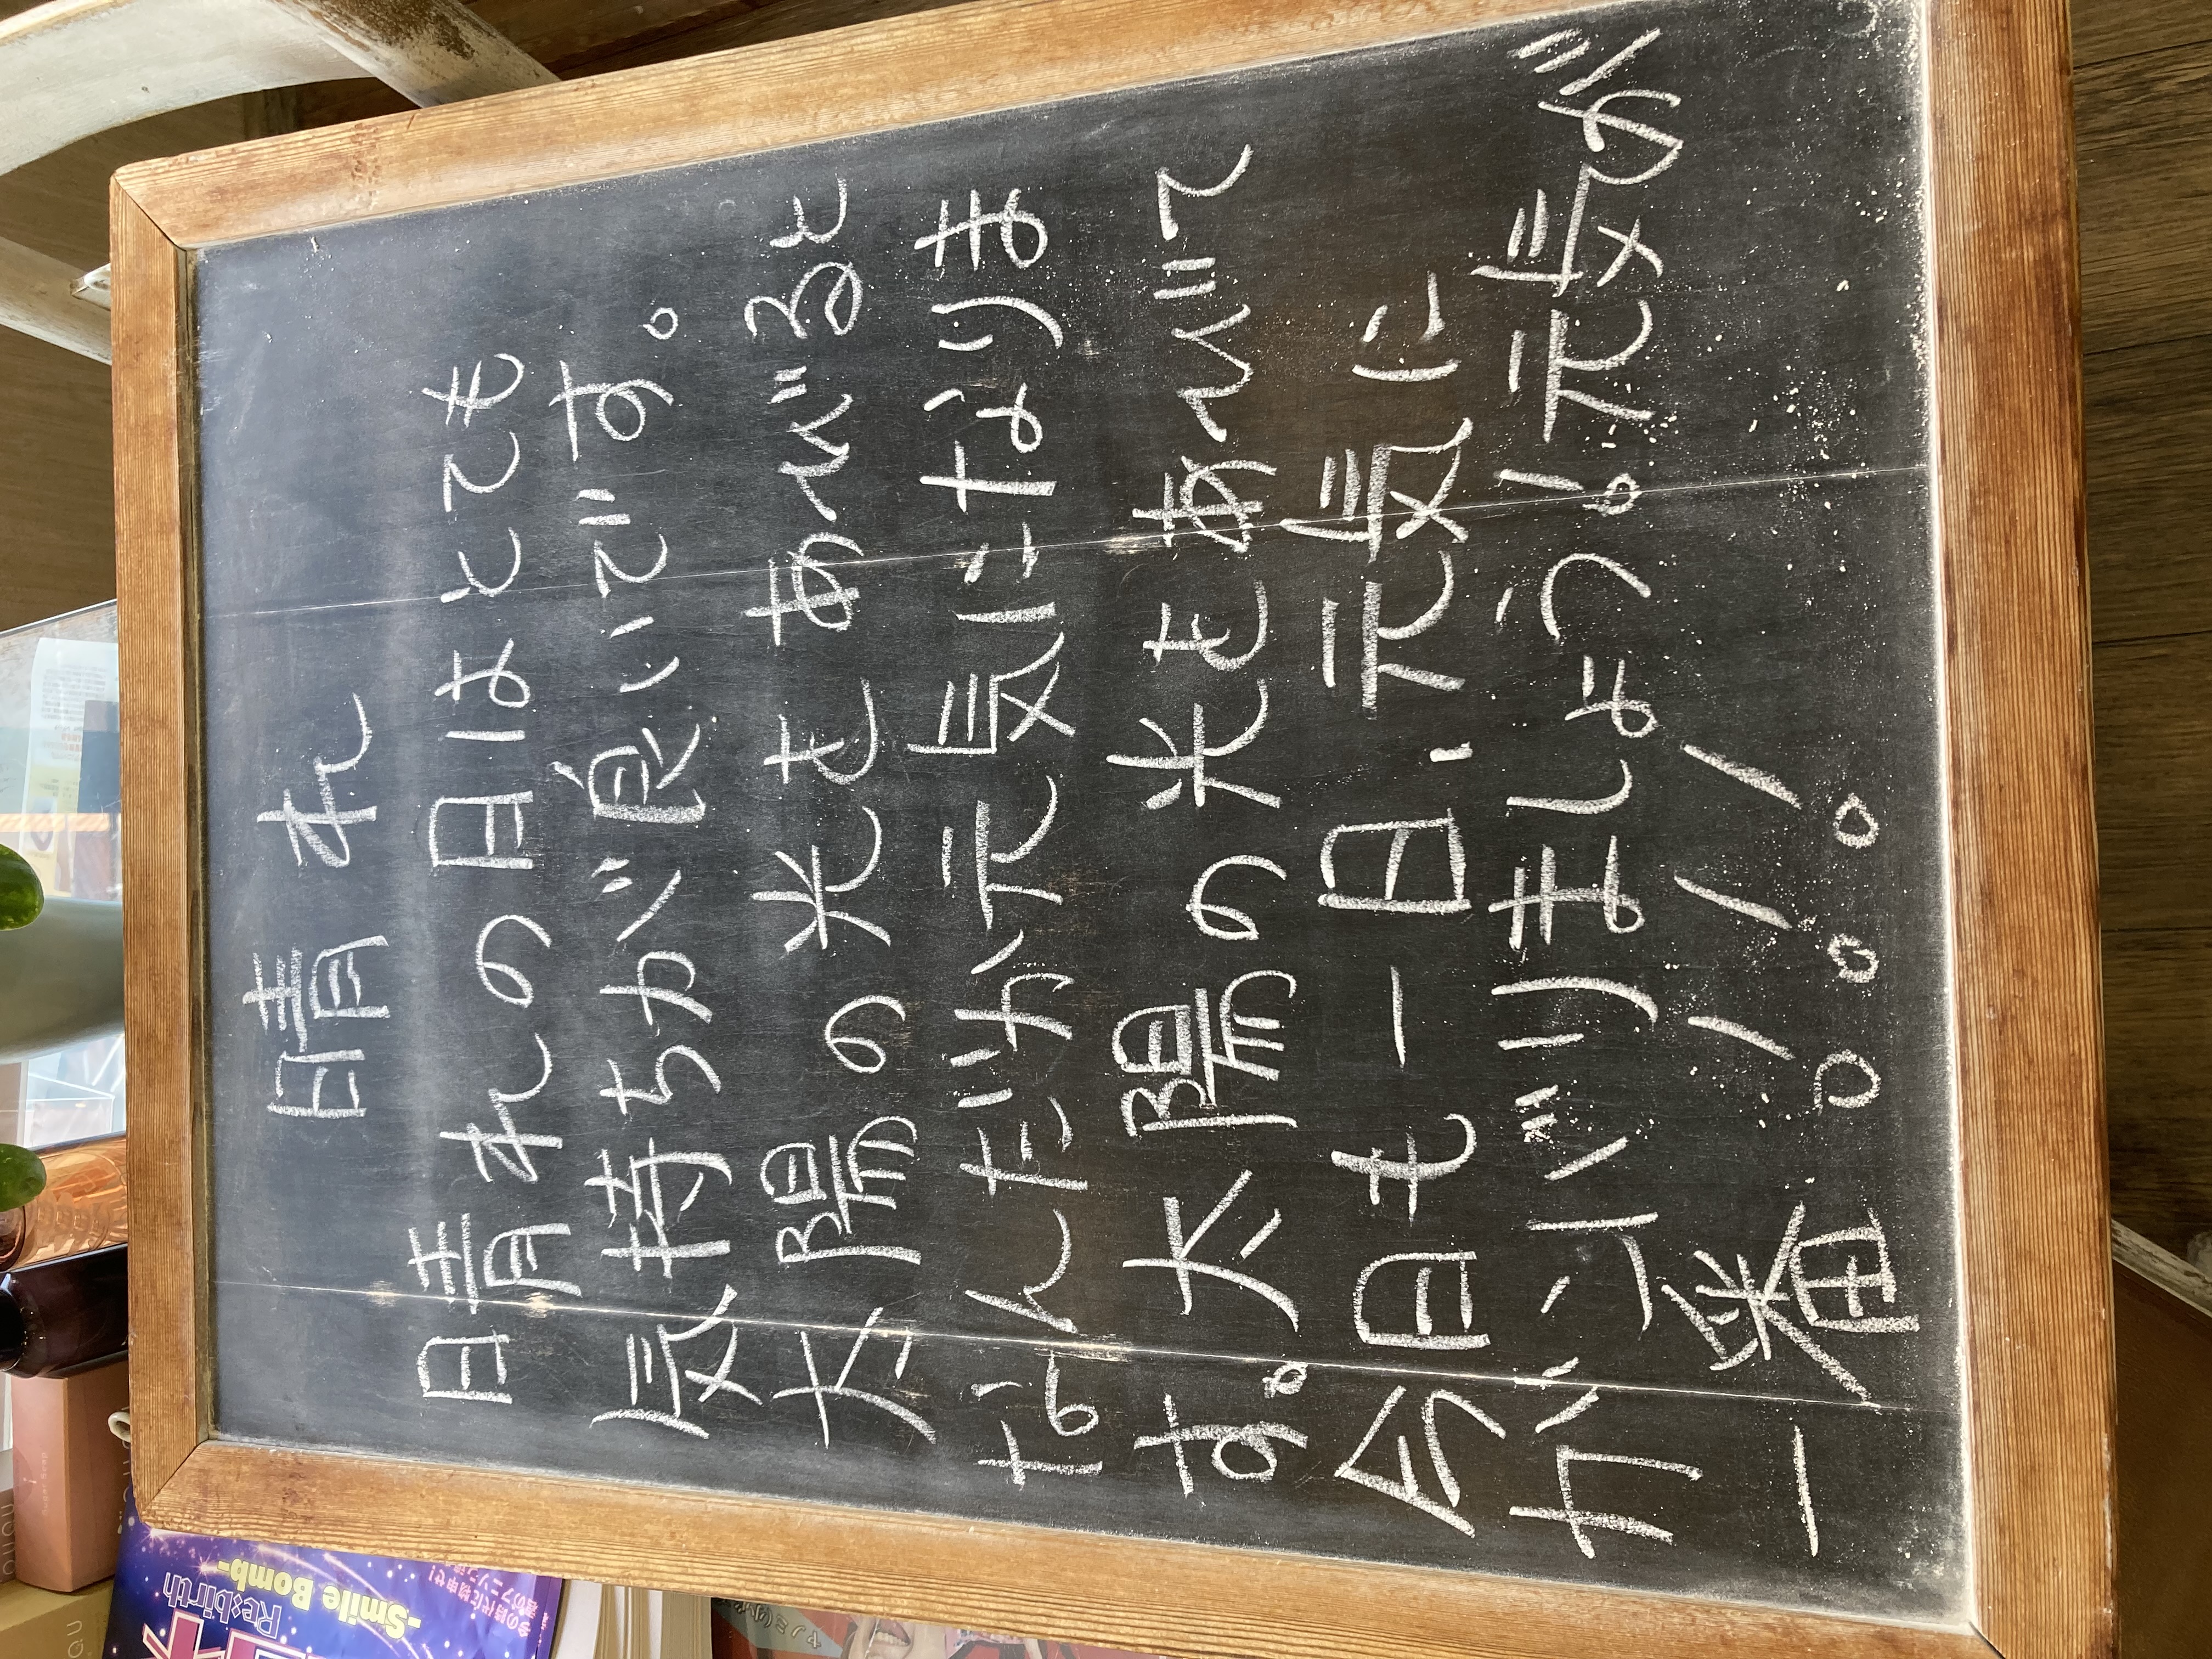 晴れ
晴れの日はとても
気持ちが良いです。
太陽の光をあびると
なんだか元気になりま
す。太陽の光をあびて
今日も一日、元気に
ガンバリましょう。元気が
一番!!!
Re:birth
-Smile Bomb-